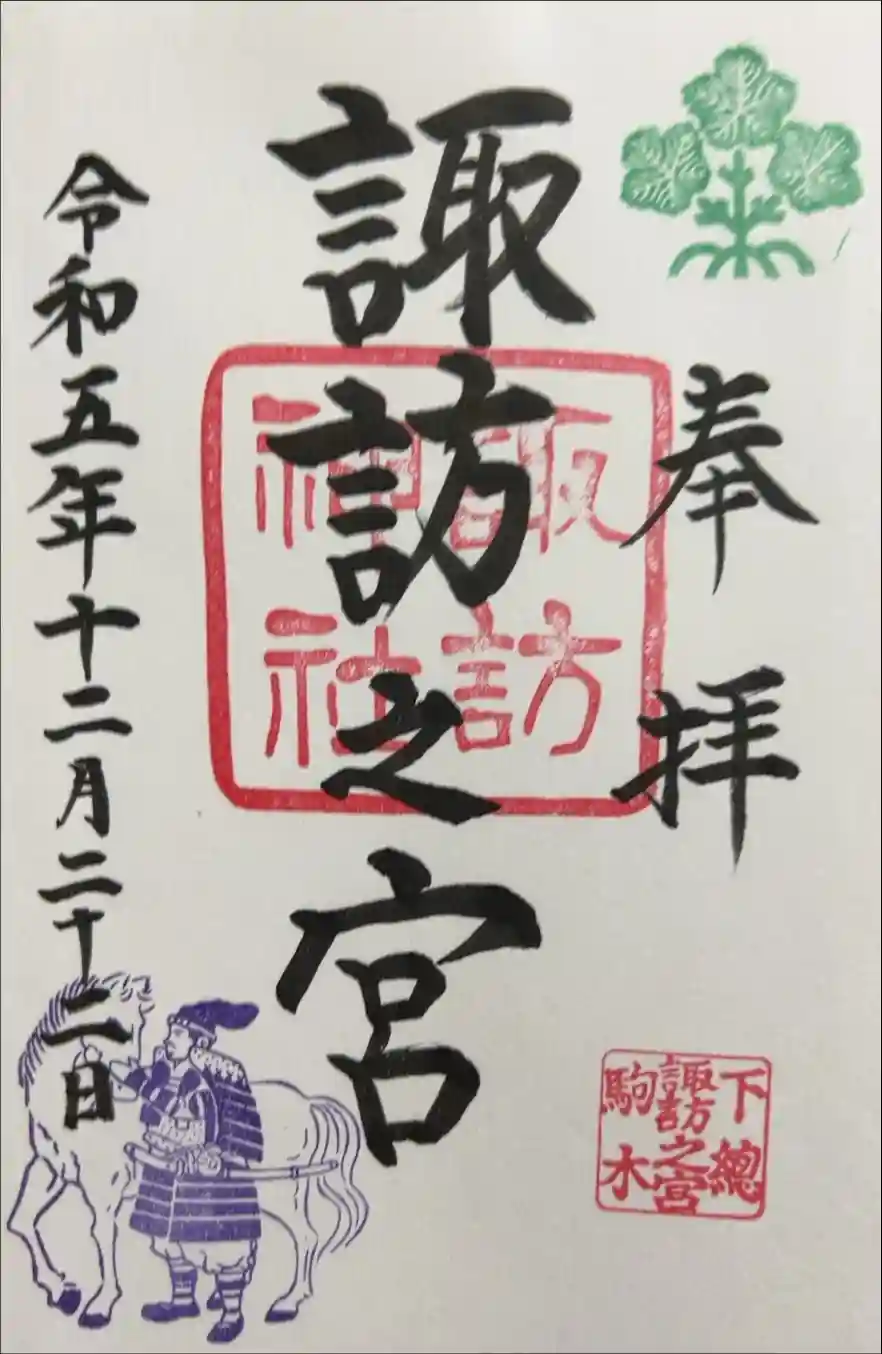 奉拝
諏訪之宮
諏訪
神社
下總
諏訪之宮
駒木
令和五年十二月二十二日